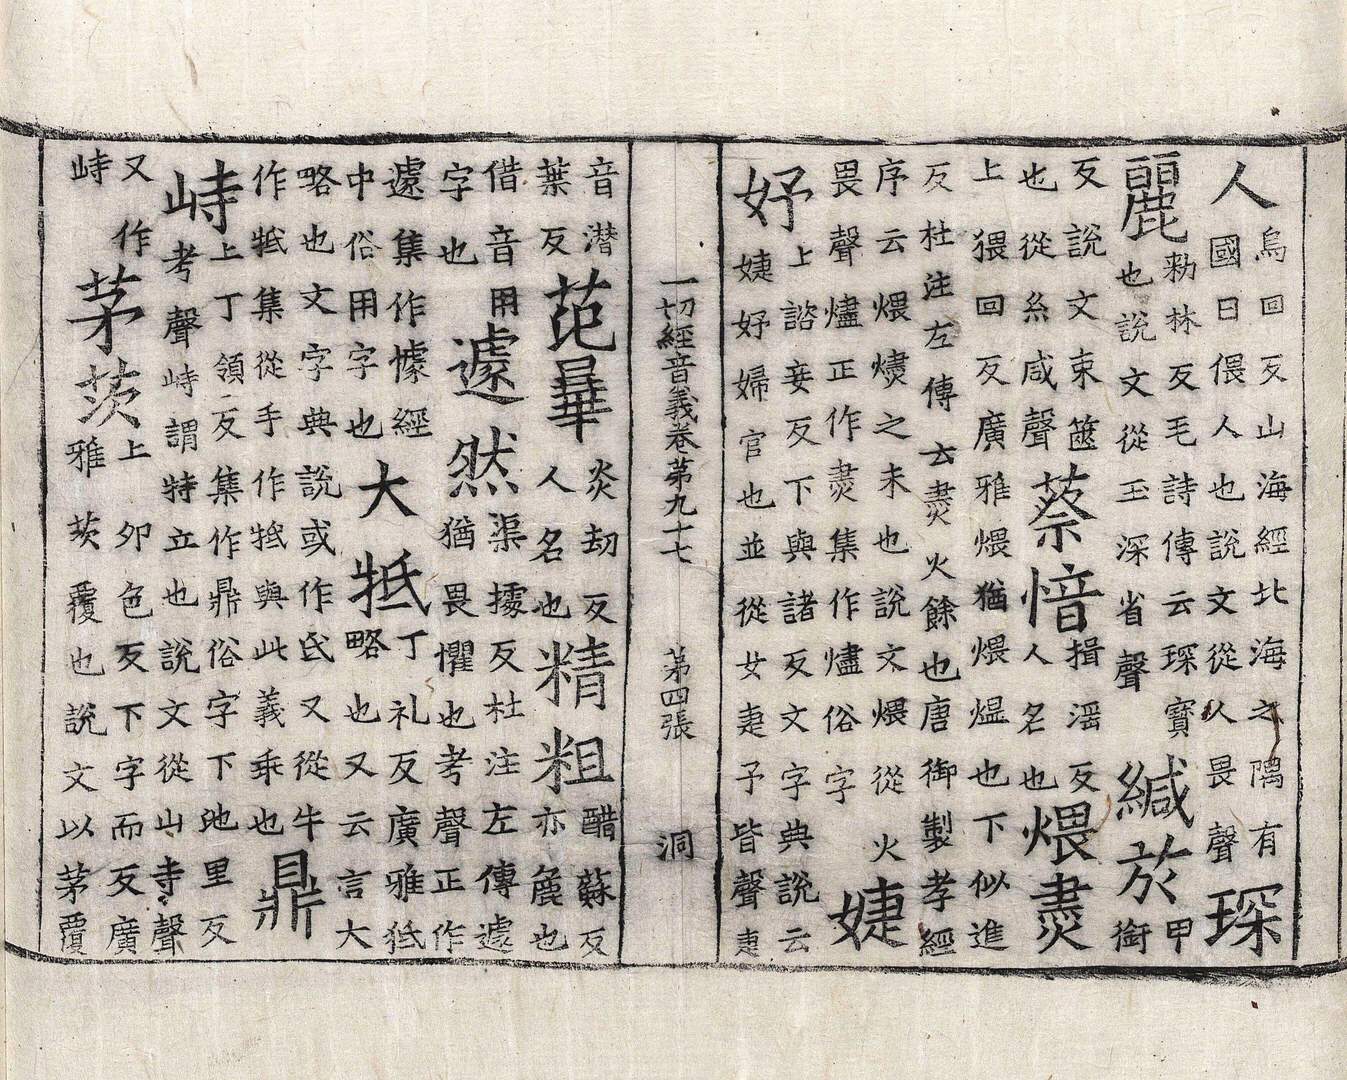 人烏回反山海經北海之隅有國曰偎人也說文從人畏聲琛
麗勑林反毛詩傳云琛寶也說文從玉深省聲緘於甲銜
反說文束篋也從糸咸聲蔡愔揖淫反人名也煨㶳
上猥回反廣雅煨猶煨熅也下似進反杜注左傳云㶳火餘也唐御製孝經
序云煨燼之末也說文煨從火畏聲燼正作㶳集作燼俗字婕
妤上諮妾反下與諸反文字典說云婕妤婦官也並從女疌予皆聲疌
一切經音義卷第九十七 第四張 洞
音潛葉反范曅炎劫反人名也精粗醋蘇反亦麁也
借音用字也遽然渠據反杜注左傳遽猶畏懼也考聲正作
遽集作懅經中俗用字也大牴丁礼反廣雅牴略也又云言大
略也文字典說或作氐又從牛作牴集從手作牴與此義乖也鼎
峙上丁領反集作鼎俗字下地里反考聲峙謂特立也說文從山寺聲
又作峙茅茨上卯色反下字而反廣雅茨覆也說文以茅覆